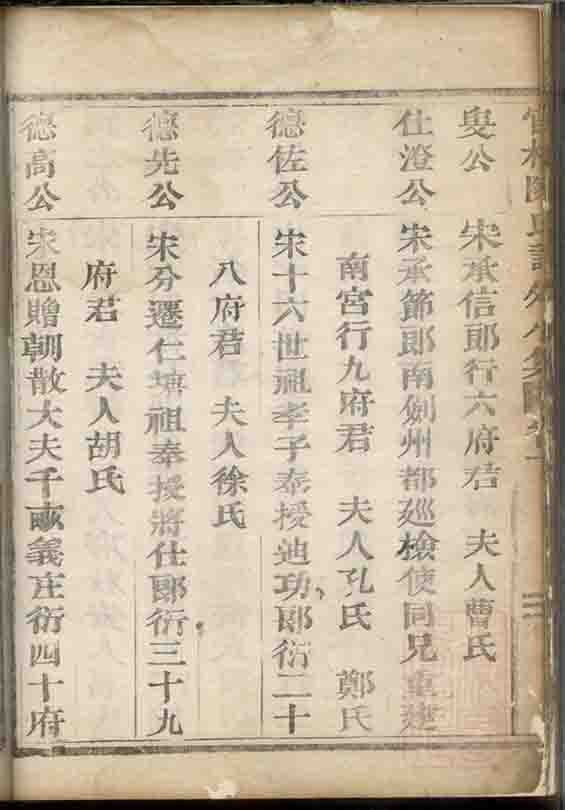 叟公 宋承信郎行六府君 夫人曹氏
仕澄公 宋承節郎南劍州都廵檢使同兄重建
南宮行九府君 夫人孔氏 鄭氏
德佐公 宋十六世祖孝子奉授迪功郎衍二十
八府君 夫人徐氏
德先公 宋分遷仁塘祖奉授將仕郎衍三十九
府君 夫人胡氏
德高公 宋恩贈朝散大夫千畝義庄衍四十府